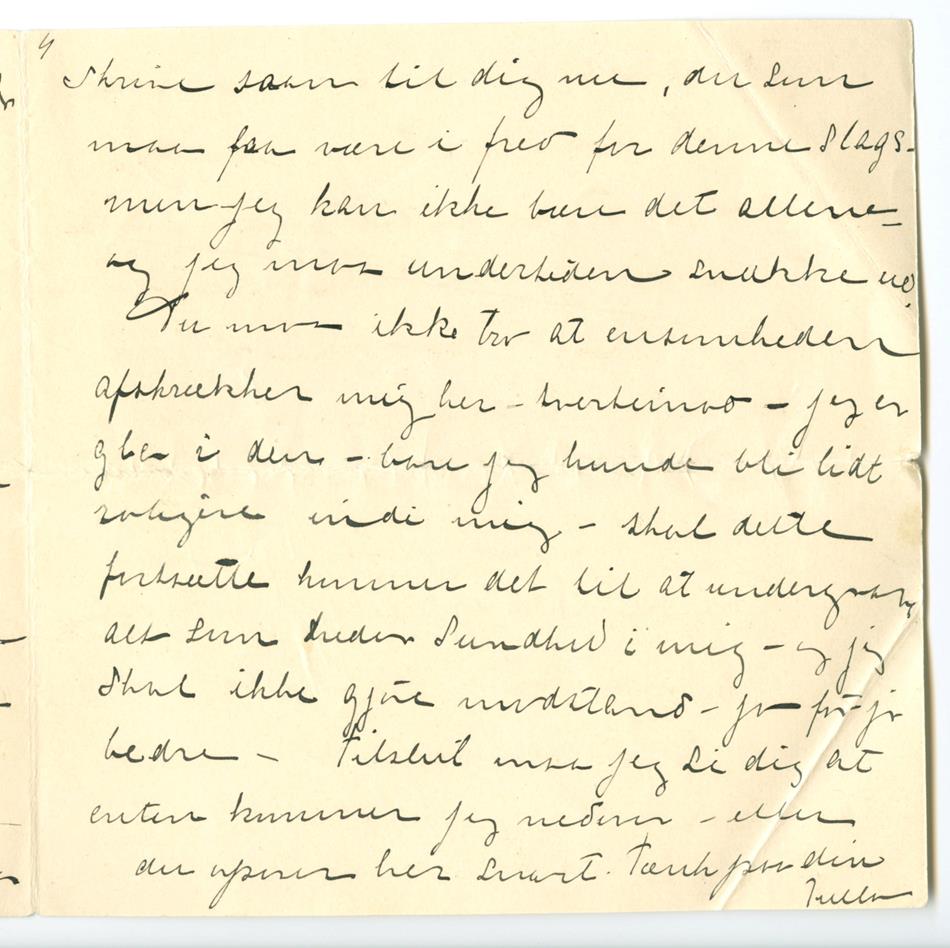 4
skrive saan til dig nu, du som
maa faa være i fred for denne Slags–
men jeg kan ikke bære det allene–
og jeg maa undertiden snakke ud.
Du maa ikke tro at ensomheden
afskrækker mig her – tvertimod – jeg er
gla i den – bare jeg kunde bli lidt
roligere indi mig – skal dette
fortsætte kommer det til at undergrave
alt som heder Sundhed i mig – og jeg
skal ikke gjøre modstand – jo før jo
bedre – Tilslut maa jeg si dig at
enten kommer jeg nedover – eller
du opover her snart. Tænk paa din
Tulla